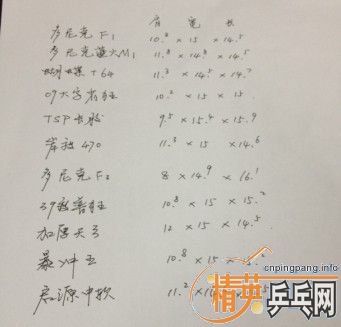 肩 宽 长
多尼克 F1 10.8 × 15 × 14.5
多尼克蓝火M1 11.8 × 14.8 × 14.5
蝴蝶 t64 11.3 × 14.5 × 14.7
09大字省狂 10.2 × 15 × 15
TSP 9.5 × 15.4 × 15.9
岸荻 470 11.3 × 15 × 14.6
多尼克 F2 8 × 14.9 × 16.1
39 省狂 10.8 × 15 × 15.2
加厚天3 12 × 15 × 14.5
暴冲王 10.8 × 15 ×
启源中软 11.2 ×
cnpingpang.info
精英乒乓网